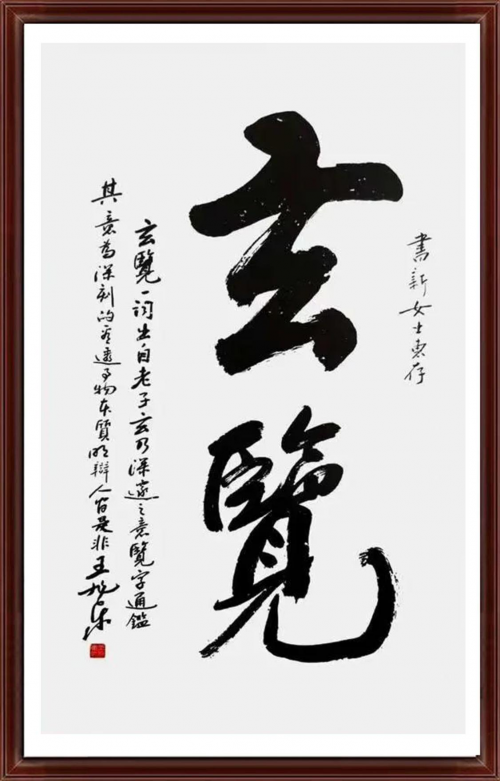 書新女士惠存
玄覽
玄覽一詞出自老子玄乃深遠之意覽字通鑑
其意為深刻的看透事物本質明辯人间是非王